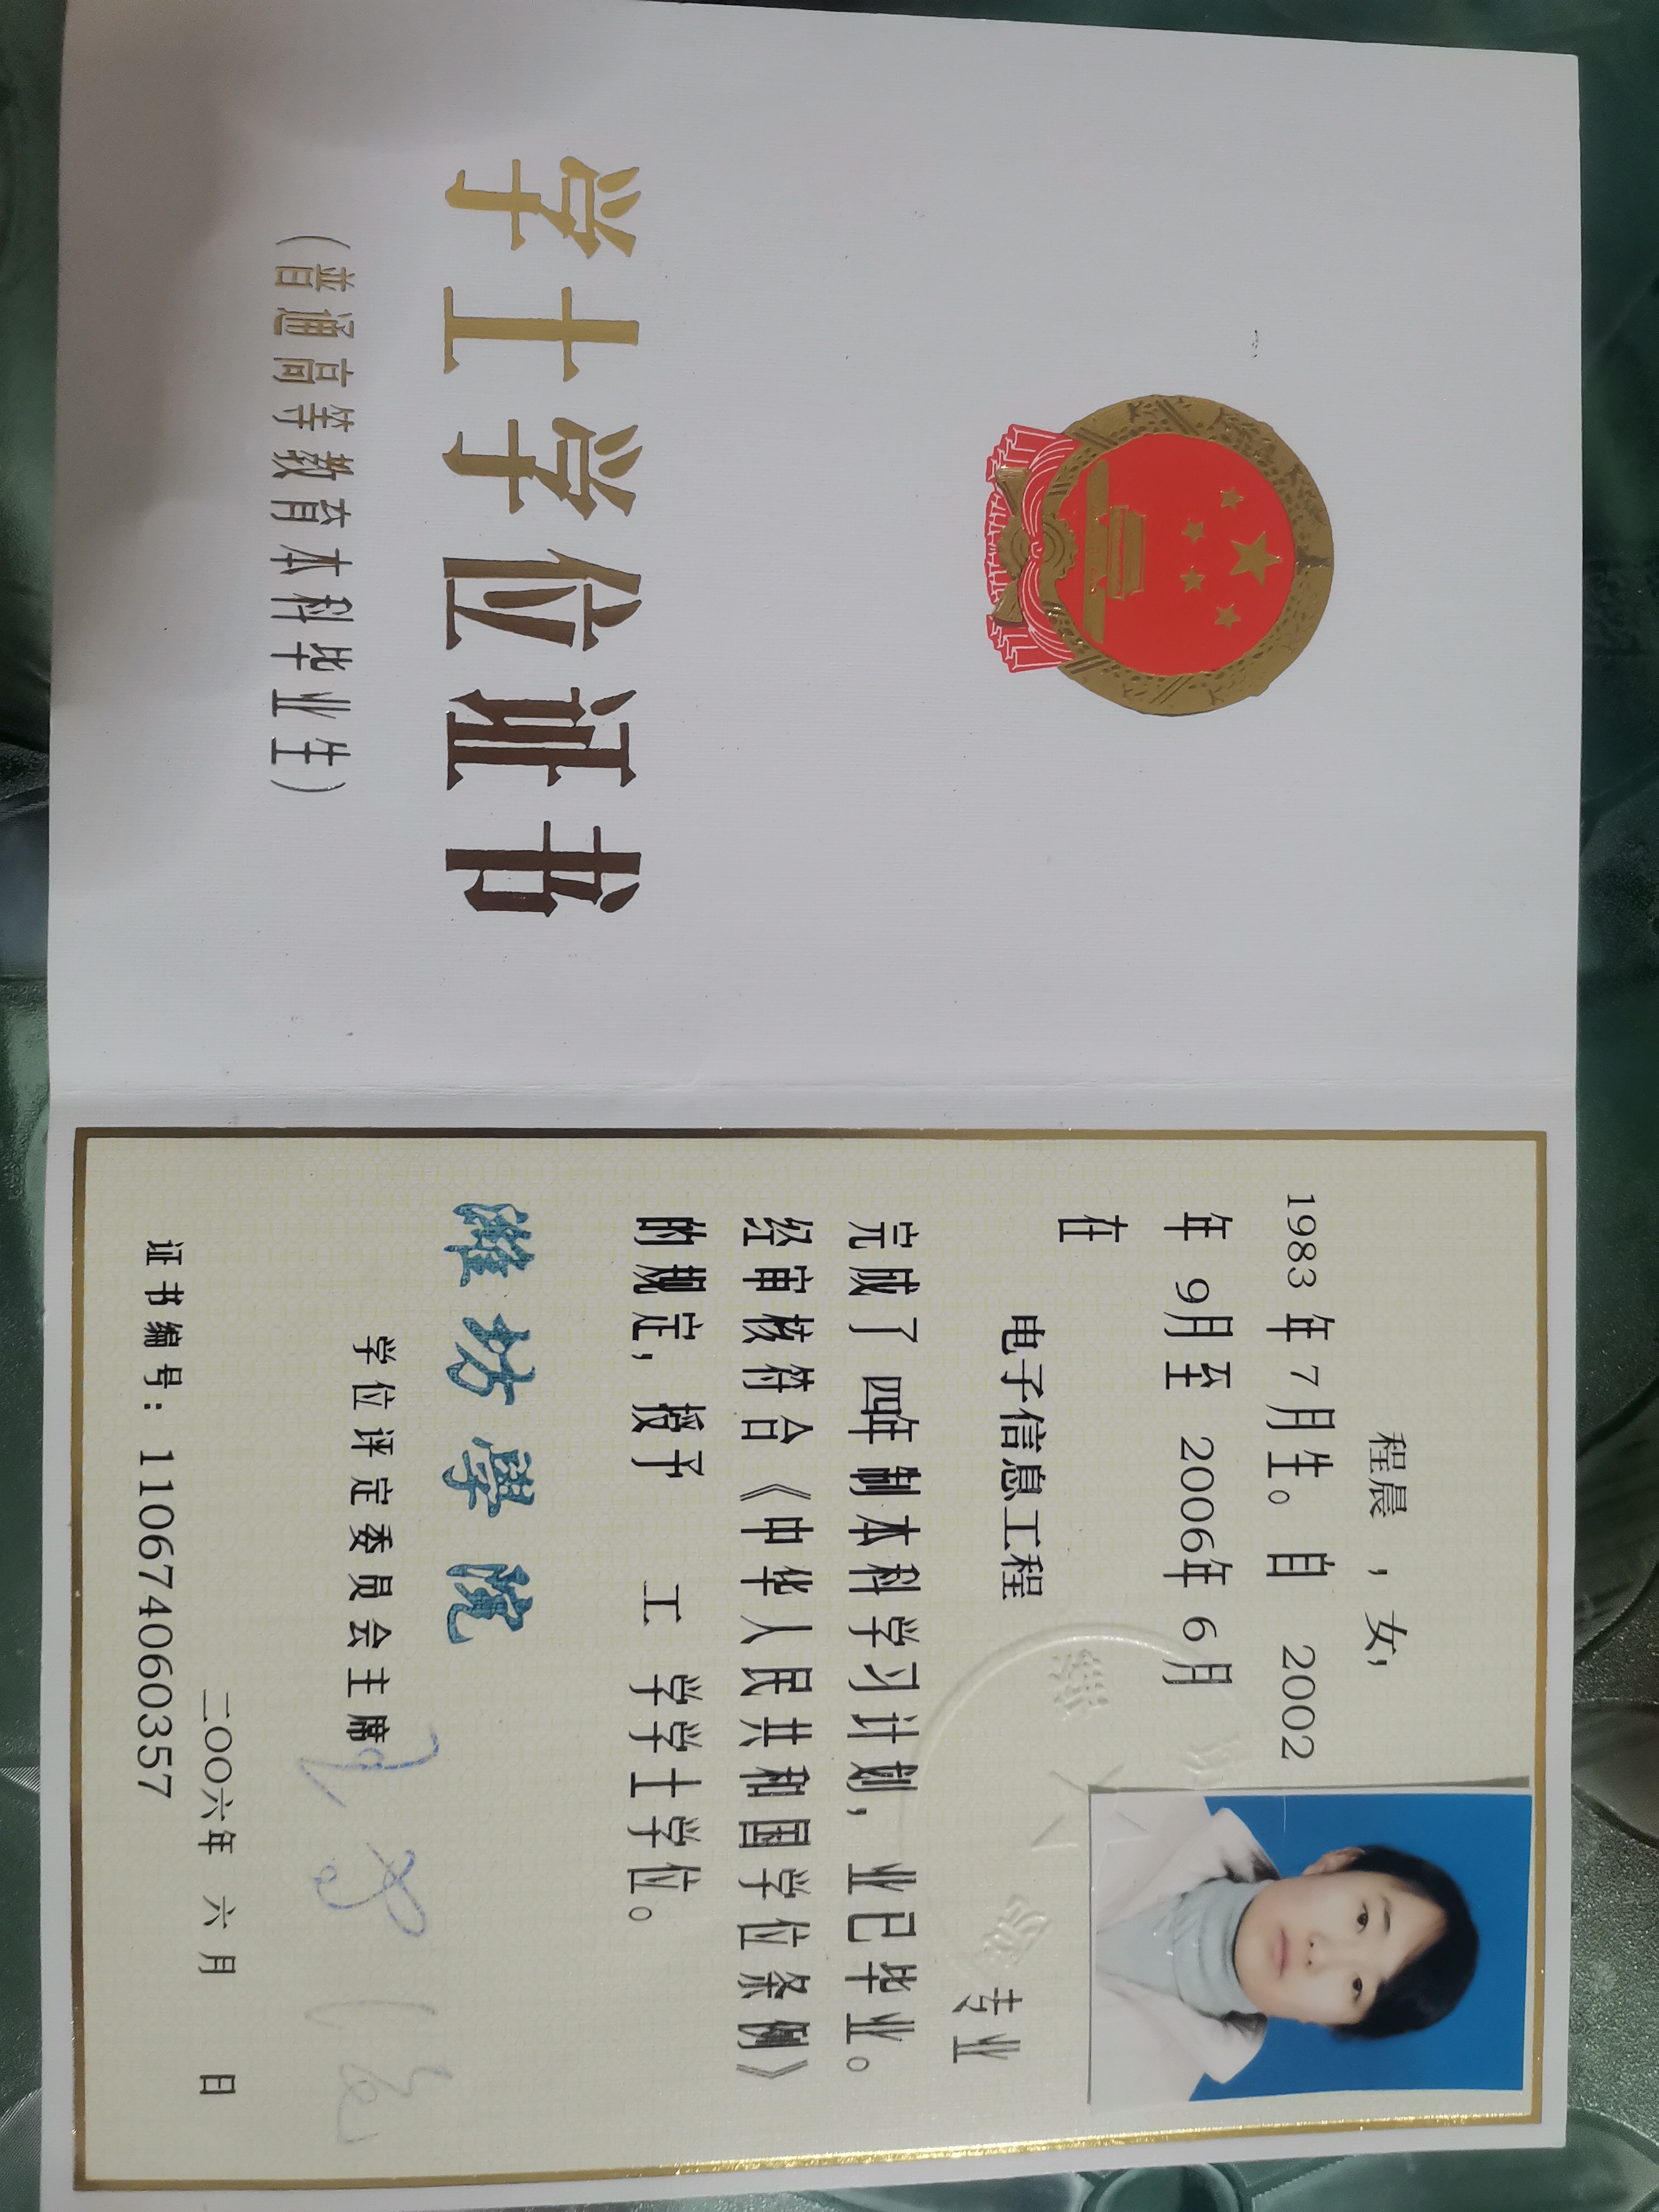 学士学位证书
(普通高等教育本科毕业生)
程晨，女，
1983年7月生。自 2002
年 9月至 2006年 6月
在
电子信息工程
专业
完成了 四年 制本科学习计划，业已毕业。
经审核符合《中华人民共和国学位条例》
的规定，授予 工 学学士学位。
潍坊學院
学位评定委员会主席
二〇〇六年 六月 日
证书编号：110674060357